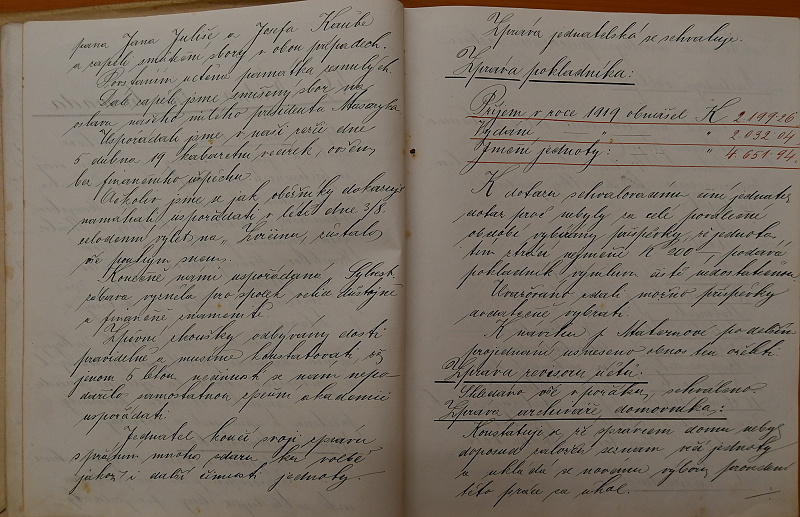 pana Jana Juliše a Josefa Koube
a zapěli smíšené sbory v obou případech.
Povstáním uctěna památka zesnulých.
Dále zapěli jsme smíšený sbor na
oslavu našeho milého presidenta Masaryka
Uspořádali jsme v naší režii dne
5 dubna 19 kabaretní večírek, ovšem
bez finančního úspěchu.
Ačkoliv jsme se jak oběžníky dokazují
namáhali uspořádati v létě dne 3/8.
celodenní výlet na „ , zůstalo
vše pouhým snem.
Konečně námi uspořádaná Sylvest.
zábava vyzněla pro spolek velice důstojně
a finančně znamenitě.
Zpěvní zkoušky odbývány dosti
pravidelně a musíme konstatovati, že
jenom 5 letou nečinností se nám nepo-
dařilo samostatnou zpěvní akademii
uspořádati.
Jednatel končí svoji zprávu
s přáním mnoho zdaru ku volbě
jakož i další činnosti jednoty.
Zpráva jednatelská se schvaluje.
Zpráva pokladníka:
Příjem v roce 1919 obnášel K 2199·26
Vydání " " 2032·04
Jmění jednoty: " 4.651·94.
K dotazu schvalovacímu činí jednatel
dotaz proč nebyly za celé poválečné
období vybírány příspěvky, že jednota
tím ztrácí nejméně K 200–, podává
pokladník výmluvu čistě nedostatečnou.
Uvažováno zdali možno příspěvky
dodatečně vybrati.
K návrhu p. Maternové po delším
projednání usneseno obnos ten oželeti.
Zpráva revisorů účtů:
Shledáno vše v pořádku, schváleno.
Zpráva archiváře domovníka:
Konstatuje se že správcem domu nebyl
doposud založen seznam věcí jednoty
a ukládá se novému výboru provedení
této práce za úkol.